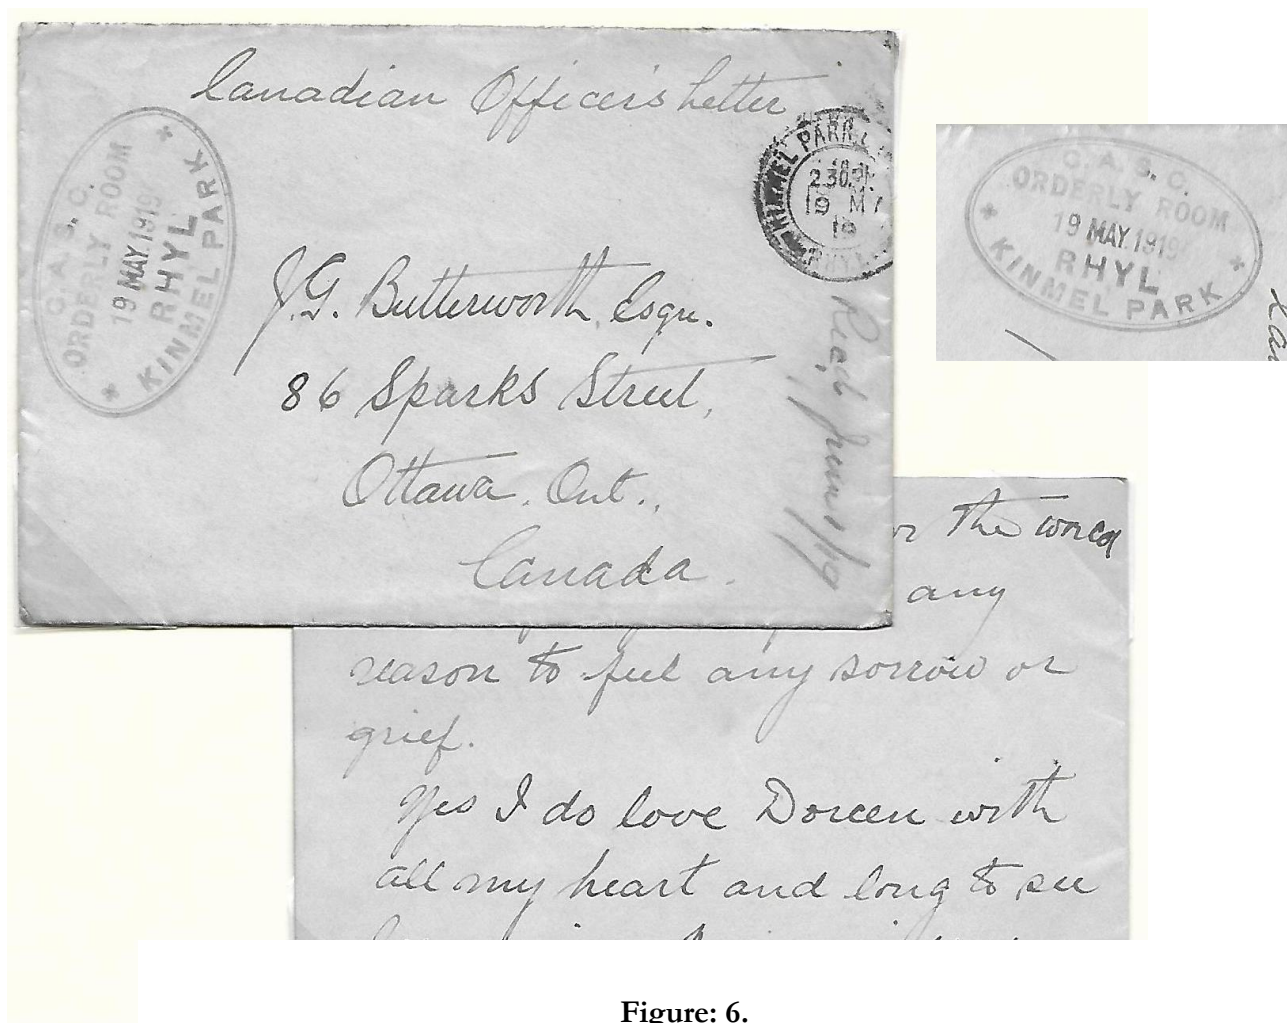 Canadian Officer's Letter
C. A. S. C.
ORDERLY ROOM
19 MAY. 1919
RHYL
KINMEL PARK
KINMEL PARK
2.30 PM
19 MY
19
RHYL
J.G. Butterworth, Esqr.
86 Sparks Street,
Ottawa, Ont.,
Canada.
Rec'd June 1/19
C. A. S. C.
ORDERLY ROOM
19 MAY. 1919
RHYL
KINMEL PARK
the world
any
reason to feel any sorrow or
grief.
Yes I do love Doreen with
all my heart and long to see
Figure: 6.